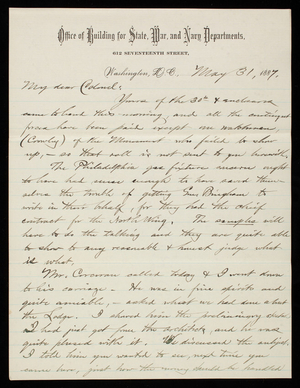 Office of Building for State, War, and Navy Departments,
612 SEVENTEENTH STREET,
Washington, D.C. May 31, 1887.
My dear Colonel:
Yours of the 30th & enclosures
came to hand this morning, and all the
forces have been paid except one watchman
(Crowley) of the Monument who failed to show
up, – so that roll is not sent to you herewith.
The Philadelphia gas fixture men ought
to have had sense enough to have saved them-
selves the trouble of getting Gen. Bingham to
write in their behalf, for they had the chief
contract for the North Wing. The samples will
have to do the talking and they are quite able
to show to any reasonable & honest judge what
is what.
Mr. Corcoran called today & I went down
to his carriage. He was in fine spirits and
quite amiable, – asked what we had done about
the Lodge. I showed him the preliminary sketch
I had just got from the architect, and he was
quite pleased with it. We discussed the subject.
I told him you wanted to see, next time you
came here, just how the money should be handled